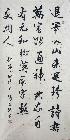 退筆如山未足珍讀書
萬卷始通神君家自
有元和脚莫厭家雞
更問人